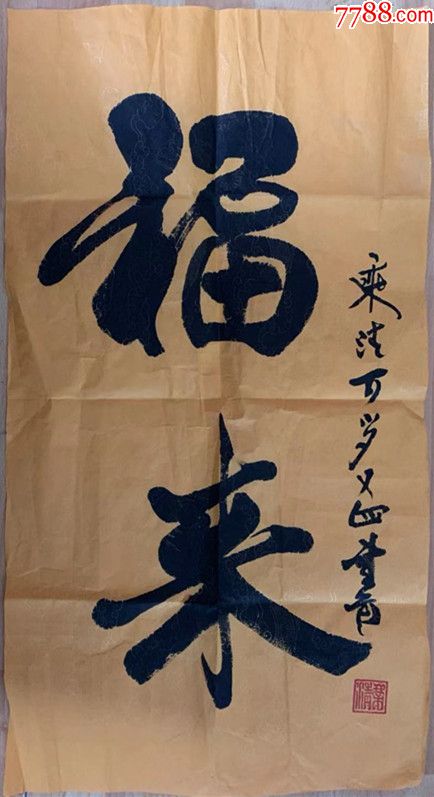 7788.com
福来
乘清百岁又四